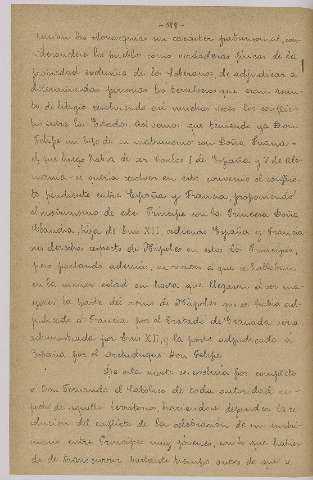 -588-
tenían las Monarquías un carácter patrimonial, con-
siderándose los pueblos como verdaderas fincas de la
propiedad exclusiva de los Soberanos de adjudicar a
determinadas personas los territorios que eran moti-
vo de litigio resolviendo así muchas veces los conflic-
tos entre los Estados. Así vemos que teniendo ya Don
Felipe un hijo de su matrimonio con Doña Juana -
el que luego había de ser Carlos I de España y V de Ale-
mania - se quería resolver en este convenio el conflic-
to pendiente entre España y Francia, proponiendo
el matrimonio de este Príncipe con la Princesa Doña
Claudia, hija de Luis XII, cediendo España y Francia
sus derechos respecto de Nápoles en estos dos Príncipes,
pero pactando además, en razón a que se hallaban
en la menor edad en hasta que llegaran al ser ma-
yores, la parte del reino de Nápoles que se había ad-
judicado a Francia por el Tratado de Granada sería
administrada por Luis XII, y la parte adjudicada a
España por el Archiduque Don Felipe.
De esta suerte se excluía por completo
a Don Fernando el Católico de toda autoridad res-
pecto de aquellos territorios, haciéndose depender la re-
solución del conflicto de la celebración de un matri-
monio entre Príncipes muy jóvenes, con lo que habían
de transcurrir bastante tiempo antes de que se